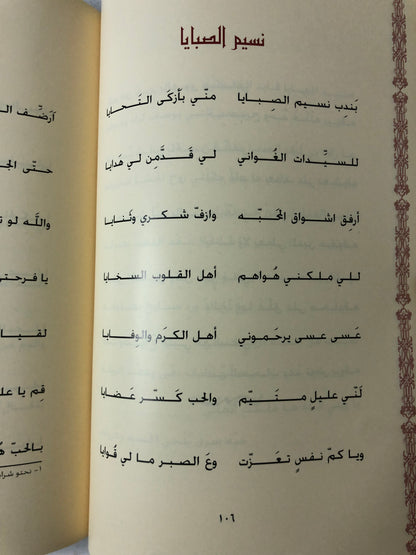 نسيم الصبايا
بَندِب نسيم الصِبايا منّي بأزكَى التَحايا
للسيِّدات الغْواني لي قَدَّمِن لي هَدايا
أرفِق اشواق المْحَبّه وازفّ شكري وثْنايا
للي ملكني هْواهم أهل القلوب السخايا
عَسى عسى يرحَموني أهل الكرَم والوِفايا
لَنّي عليلٍ متيَّم والحب كَسّر عْضايا
ويا كمّ نفسٍ تعَزّت وعَ الصبر ما لي قْوايا
١٠٦
آرَضِّف
حتّى
واللّه لو
يا فرحتي
لقيا
قِم يا
بالحبّ
١- نحتو